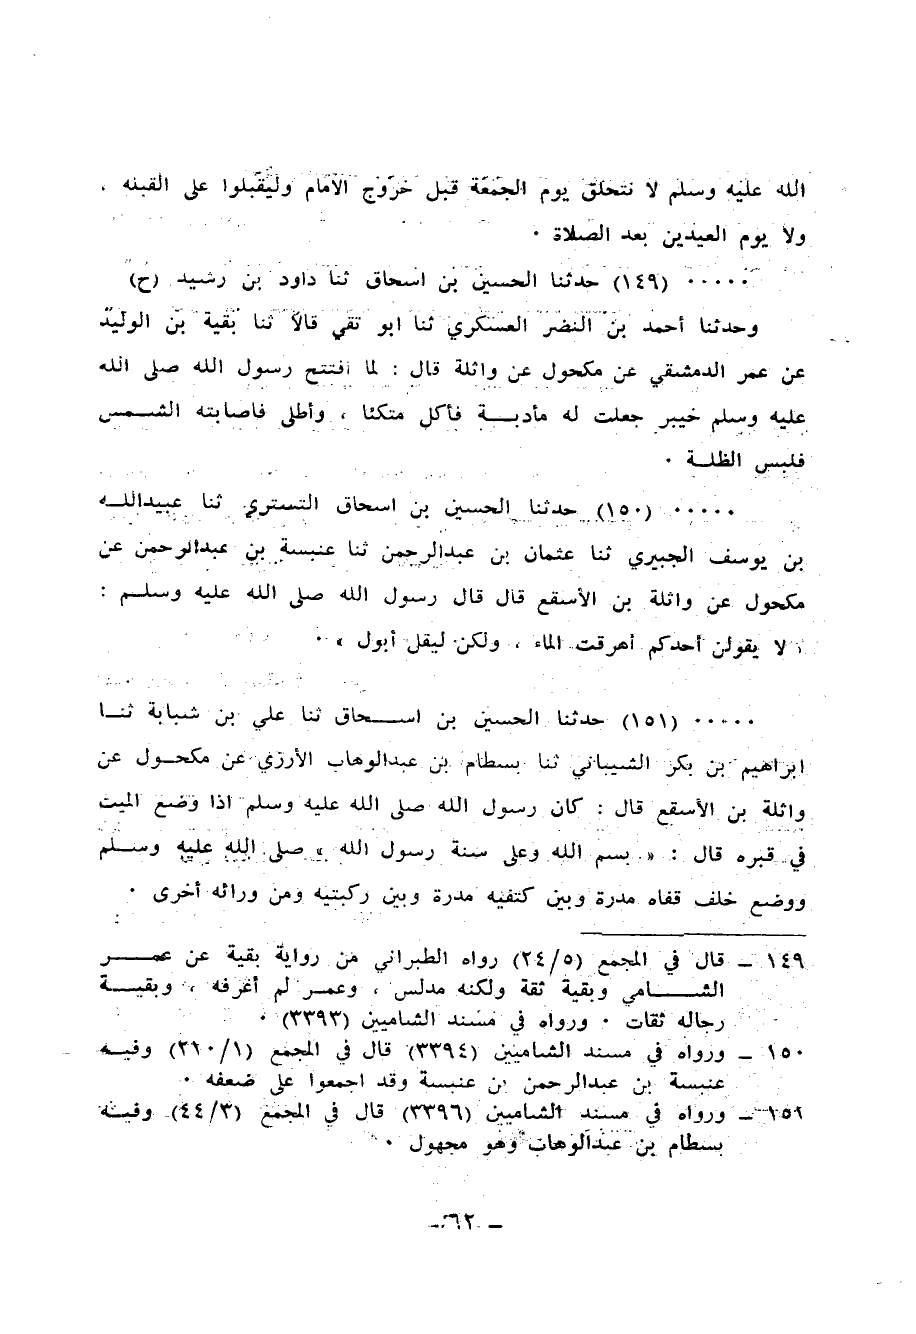 الله عليه وسلم لا نتحلق يوم الجمعة قبل خروج الامام وليقبلوا على القبله ،
ولا يوم العيدين بعد الصلاة ٠
٠٠٠٠٠ (١٤٩) حدثنا الحسين بن اسحاق ثنا داود بن رشيد (ح)
وحدثنا أحمد بن النضر العسكري ثنا ابو تقي قالا ثنا بقية بن الوليد
عن عمر الدمشقي عن مكحول عن واثلة قال : لما افتتح رسول الله صلى الله
عليه وسلم خيبر جعلت له مأدبــة فأكل متكئا ، وأطلى فاصابته الشمس
فلبس الظلة ٠
٠٠٠٠٠ (١٥٠) حدثنا الحسين بن اسحاق التستري ثنا عبيدالله
بن يوسف الجبيري ثنا عثمان بن عبدالرحمن ثنا عنبسة بن عبدالرحمن عن
مكحول عن واثلة بن الأسقع قال قال رسول الله صلى الله عليه وسلم :
« لا يقولن أحدكم أهرقت الماء ، ولكن ليقل أبول » ٠
٠٠٠٠٠ (١٥١) حدثنا الحسين بن اسحاق ثنا علي بن شبابة ثنا
ابراهيم بن بكر الشيباني ثنا بسطام بن عبدالوهاب الأرزي عن مكحول عن
واثلة بن الأسقع قال : كان رسول الله صلى الله عليه وسلم اذا وضع الميت
في قبره قال : « بسم الله وعلى سنة رسول الله » صلى الله عليه وسلم
ووضع خلف قفاه مدرة وبين كتفيه مدرة وبين ركبتيه ومن ورائه أخرى ٠
١٤٩ – قال في المجمع (٢٤/٥) رواه الطبراني من رواية بقية عن عمر
الشامي وبقية ثقة ولكنه مدلس ، وعمر لم أعرفه ، وبقية
رجاله ثقات ٠ ورواه في مسند الشاميين (٣٣٩٣) ٠
١٥٠ – ورواه في مسند الشاميين (٣٣٩٤) قال في المجمع (٢١٠/١) وفيه
عنبسة بن عبدالرحمن بن عنبسة وقد اجمعوا على ضعفه ٠
١٥١ – ورواه في مسند الشاميين (٣٣٩٦) قال في المجمع (٤٤/٣) وفيه
بسطام بن عبدالوهاب وهو مجهول ٠
– ٦٢ –